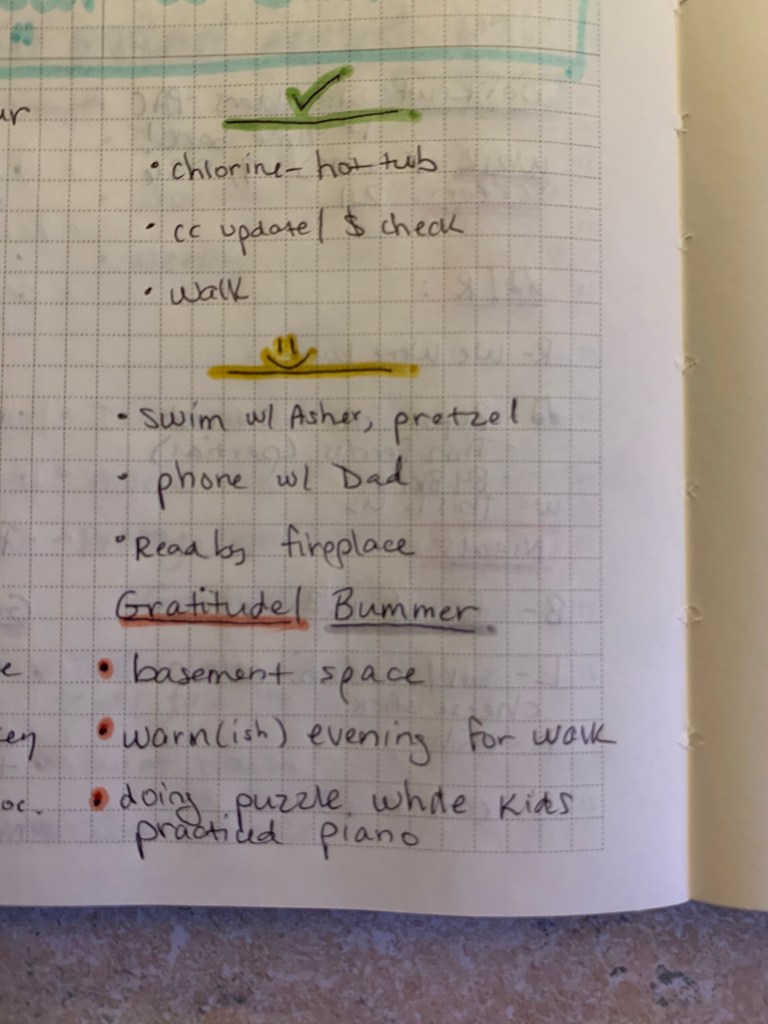 ✓
• chlorine - hot tub
• cc update / $ check
• walk
• swim w/ Asher, pretzel
• phone w/ Dad
• Read by fireplace
Gratitude / Bummer
• basement space
• warm(ish) evening for walk
• doing puzzle while kids
practiced piano